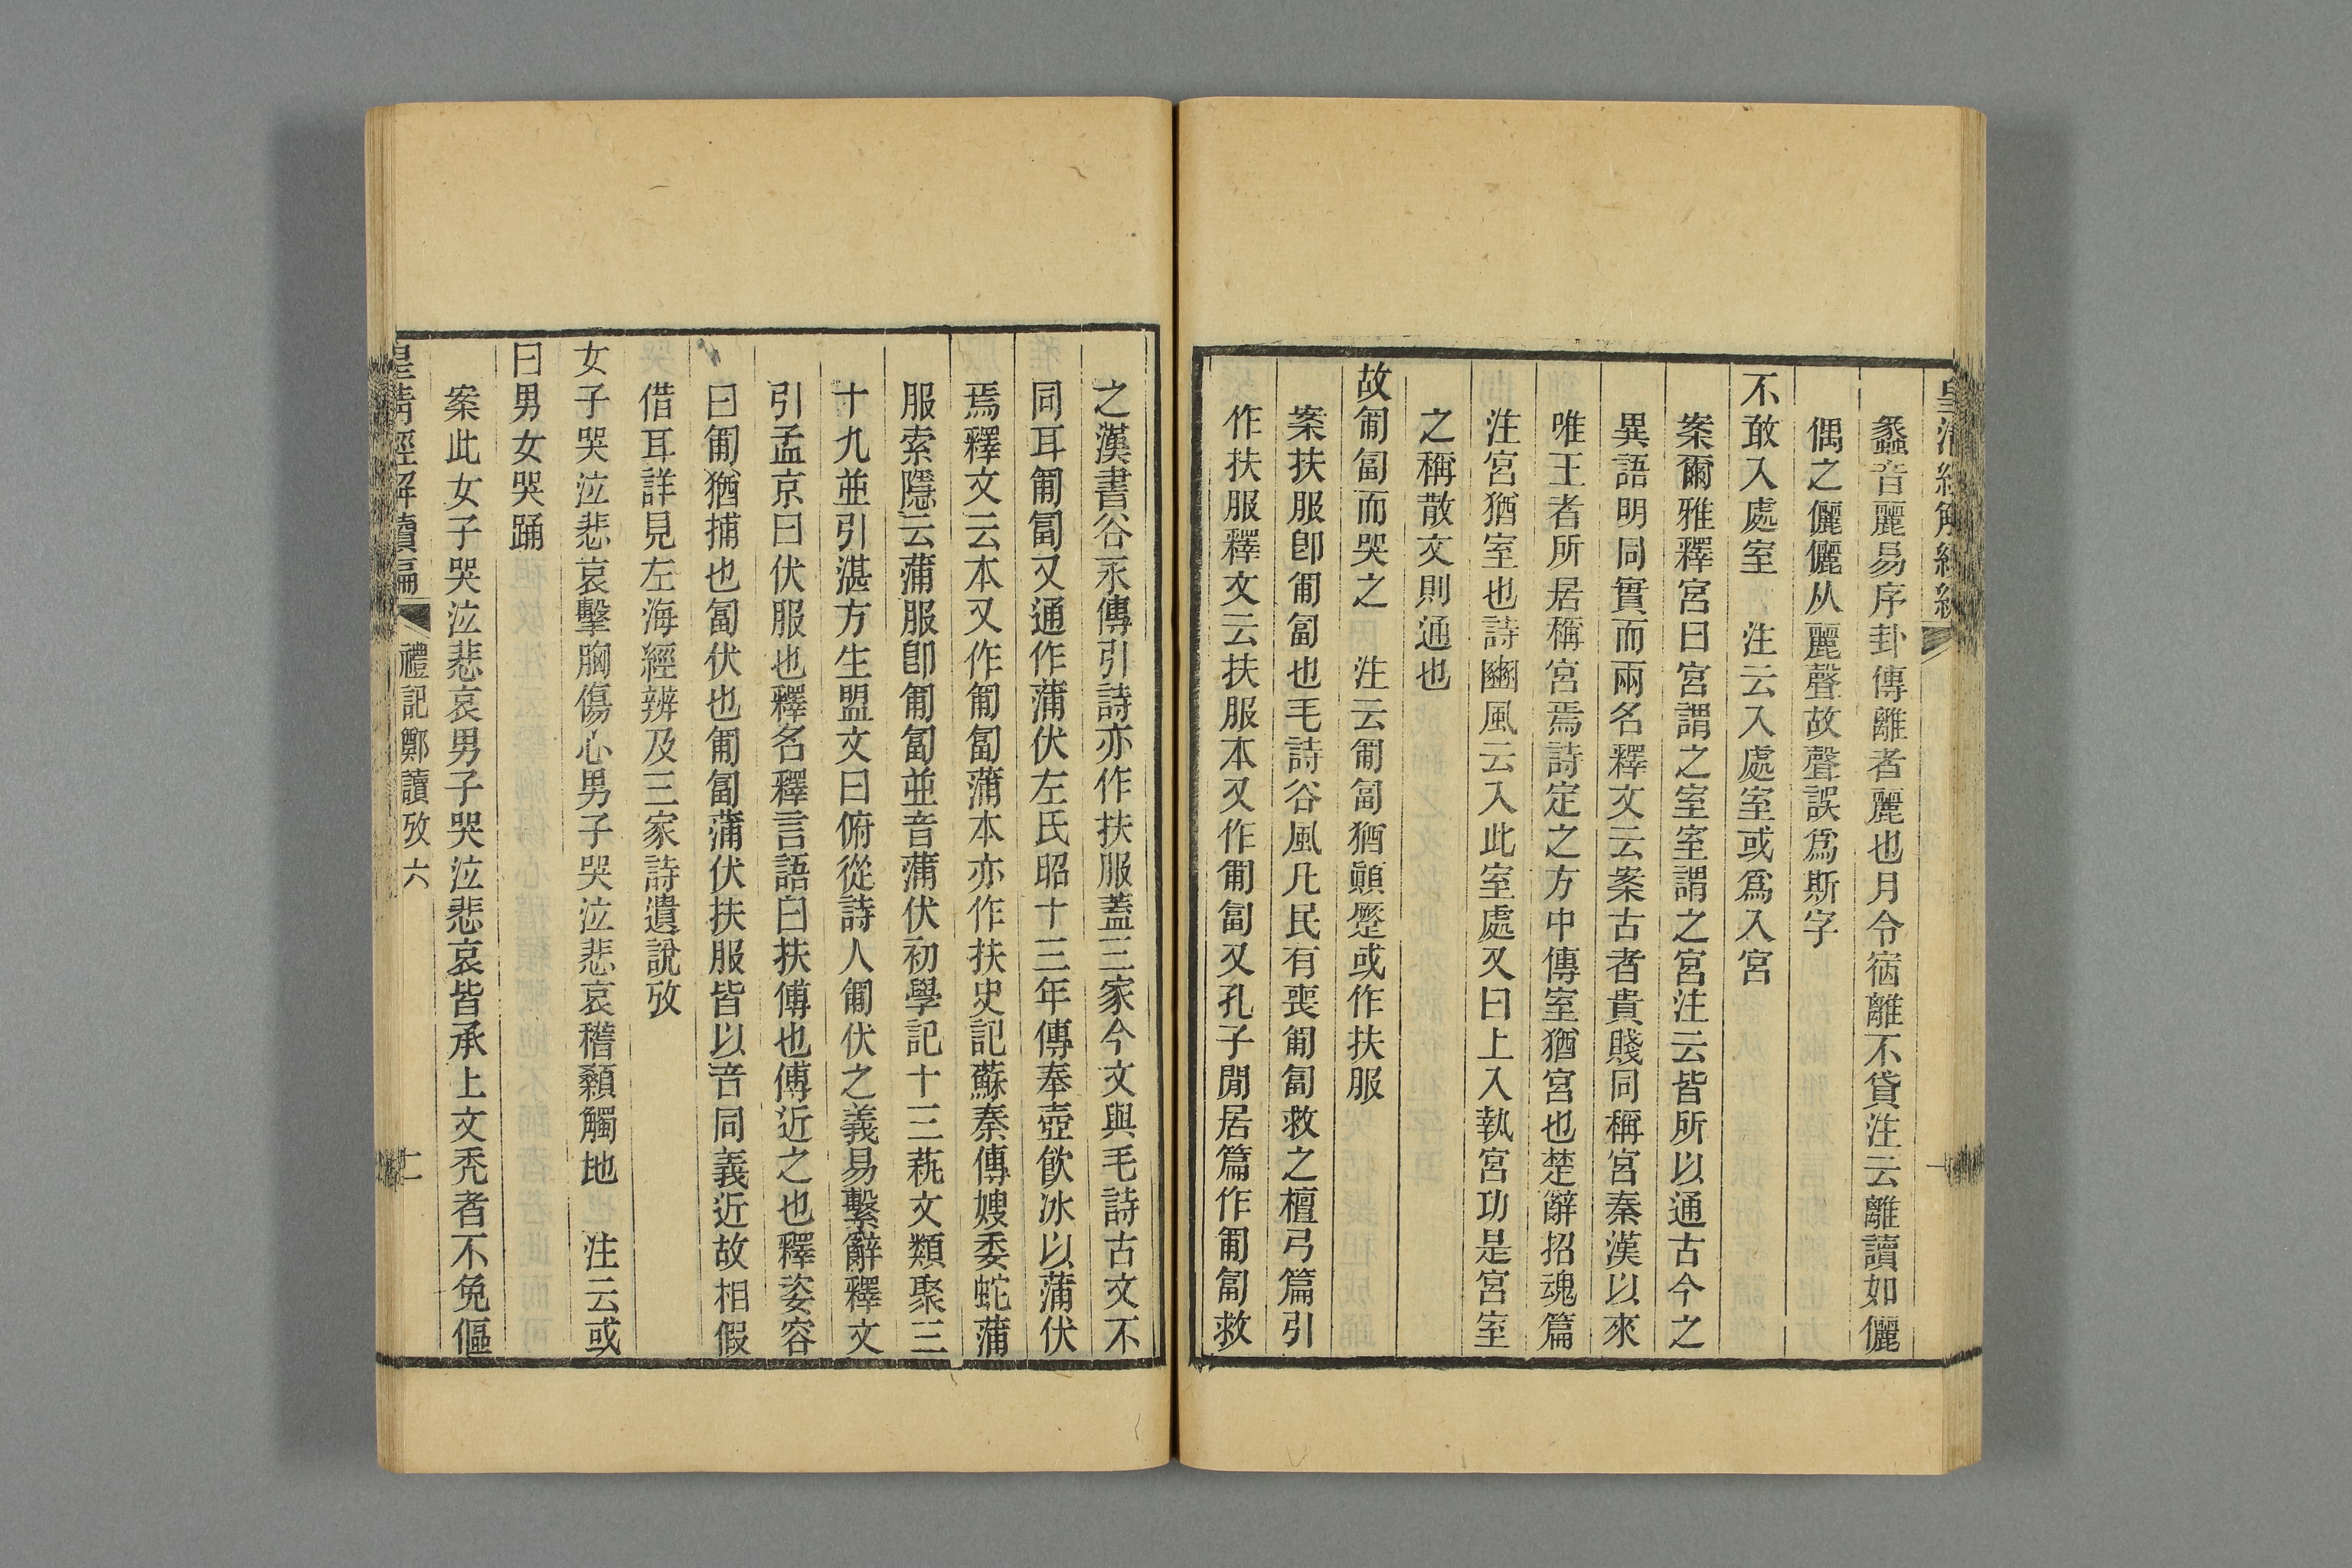 蠡音麗易序卦傳離者麗也月令宿離不貸注云離讀如儷
偶之儷儷从麗聲故聲誤爲斯字
不敢入處室 注云入處室或爲入宮
案爾雅釋宮曰宮謂之室室謂之宮注云皆所以通古今之
異語明同實而兩名釋文云案古者貴賤同稱宮秦漢以來
唯王者所居稱宮焉詩定之方中傳室猶宮也楚辭招魂篇
注宮猶室也詩豳風云入此室處又曰上入執宮功是宮室
之稱散文則通也
故匍匐而哭之 注云匍匐猶顚蹷或作扶服
案扶服卽匍匐也毛詩谷風凡民有喪匍匐救之檀弓篇引
作扶服釋文云扶服本又作匍匐又孔子閒居篇作匍匐救
之漢書谷永傳引詩亦作扶服蓋三家今文與毛詩古文不
同耳匍匐又通作蒲伏左氏昭十三年傳奉壺飮冰以蒲伏
焉釋文云本又作匍匐蒲本亦作扶史記蘇秦傳嫂委蛇蒲
服索隱云蒲服卽匍匐並音蒲伏初學記十三蓺文類聚三
十九並引湛方生盟文曰俯從詩人匍伏之義易繫辭釋文
引孟京曰伏服也釋名釋言語曰扶傅也傅近之也釋姿容
曰匍猶捕也匐伏也匍匐蒲伏扶服皆以音同義近故相假
借耳詳見左海經辨及三家詩遺說攷
女子哭泣悲哀擊胸傷心男子哭泣悲哀稽顙觸地 注云或
曰男女哭踊
案此女子哭泣悲哀男子哭泣悲哀皆承上文禿者不免傴
皇淸經解續編 禮記鄭讀攷六 二